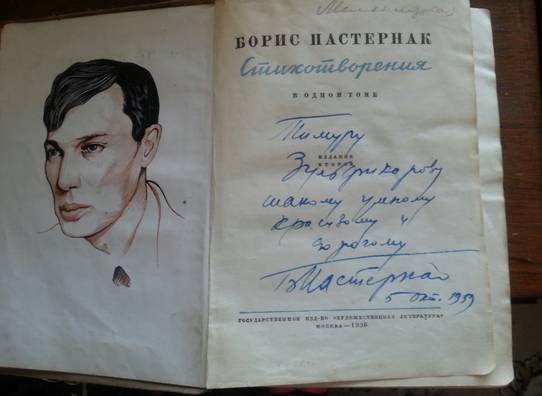 БОРИС ПАСТЕРНАК
Стихотворения
В ОДНОМ ТОМЕ
Тимуру
ИЗДАНИЕ
ВТОРОЕ
Зульфикарову
такому умному
красивому и
дорогому
БПастернак
5 окт. 1959
ГОСУДАРСТВЕННОЕ ИЗД-ВО «ХУДОЖЕСТВЕННАЯ ЛИТЕРАТУРА»
МОСКВА—1936